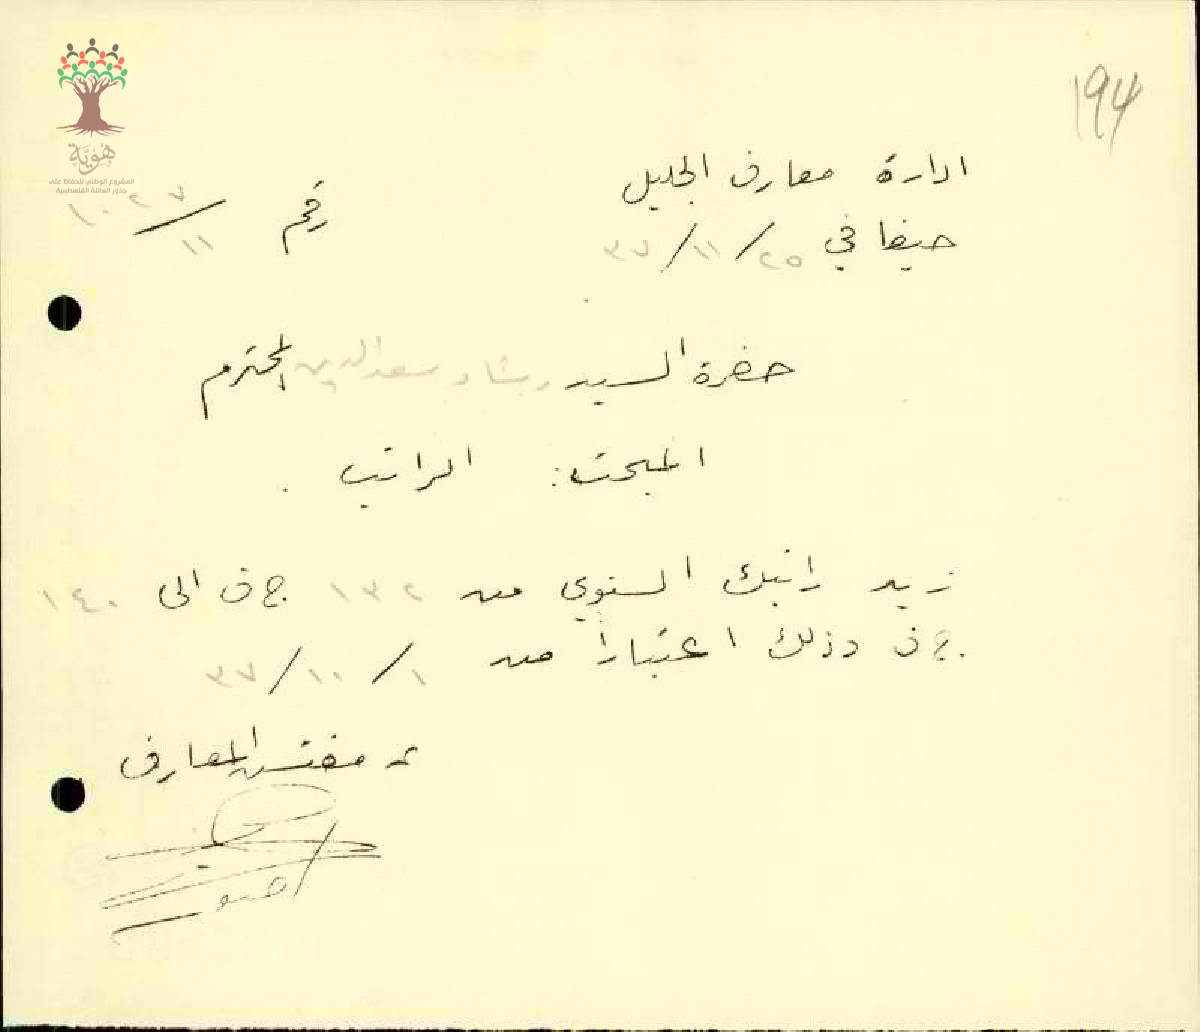 194
هُوِيَّة
المشروع الوطني للحفاظ على
جذور العائلة الفلسطينية
ادارة معارف الجليل
رقم ١٠٢٧/١١
حيفا في ٢٥/١١/٣٧
حضرة السيد رشاد سعد الدين المحترم
المبحث: الراتب .
زيد راتبك السنوي من ١٣٢ ج ف الى ١٤٠
ج ف وذلك اعتباراً من ١/١٠/٣٧
عن مفتش المعارف